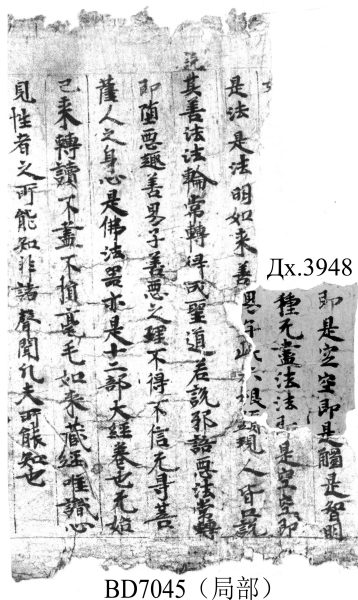 Дх.3948
即是空空即是觸是智明
種无盡法法是空空即
是法是法明如來善男子此六根顯現人皆口說
說其善法法輪常轉得成聖道若說邪語惡法常轉
即墮惡趣善男子善惡之理不得不信无㝵菩
薩人之身心是佛法器亦是十二部大經卷也无始
已來轉讀不盡不損毫毛如來藏經唯識心
見性者之所能知非諸聲聞凡夫所能知也
BD7045（局部）